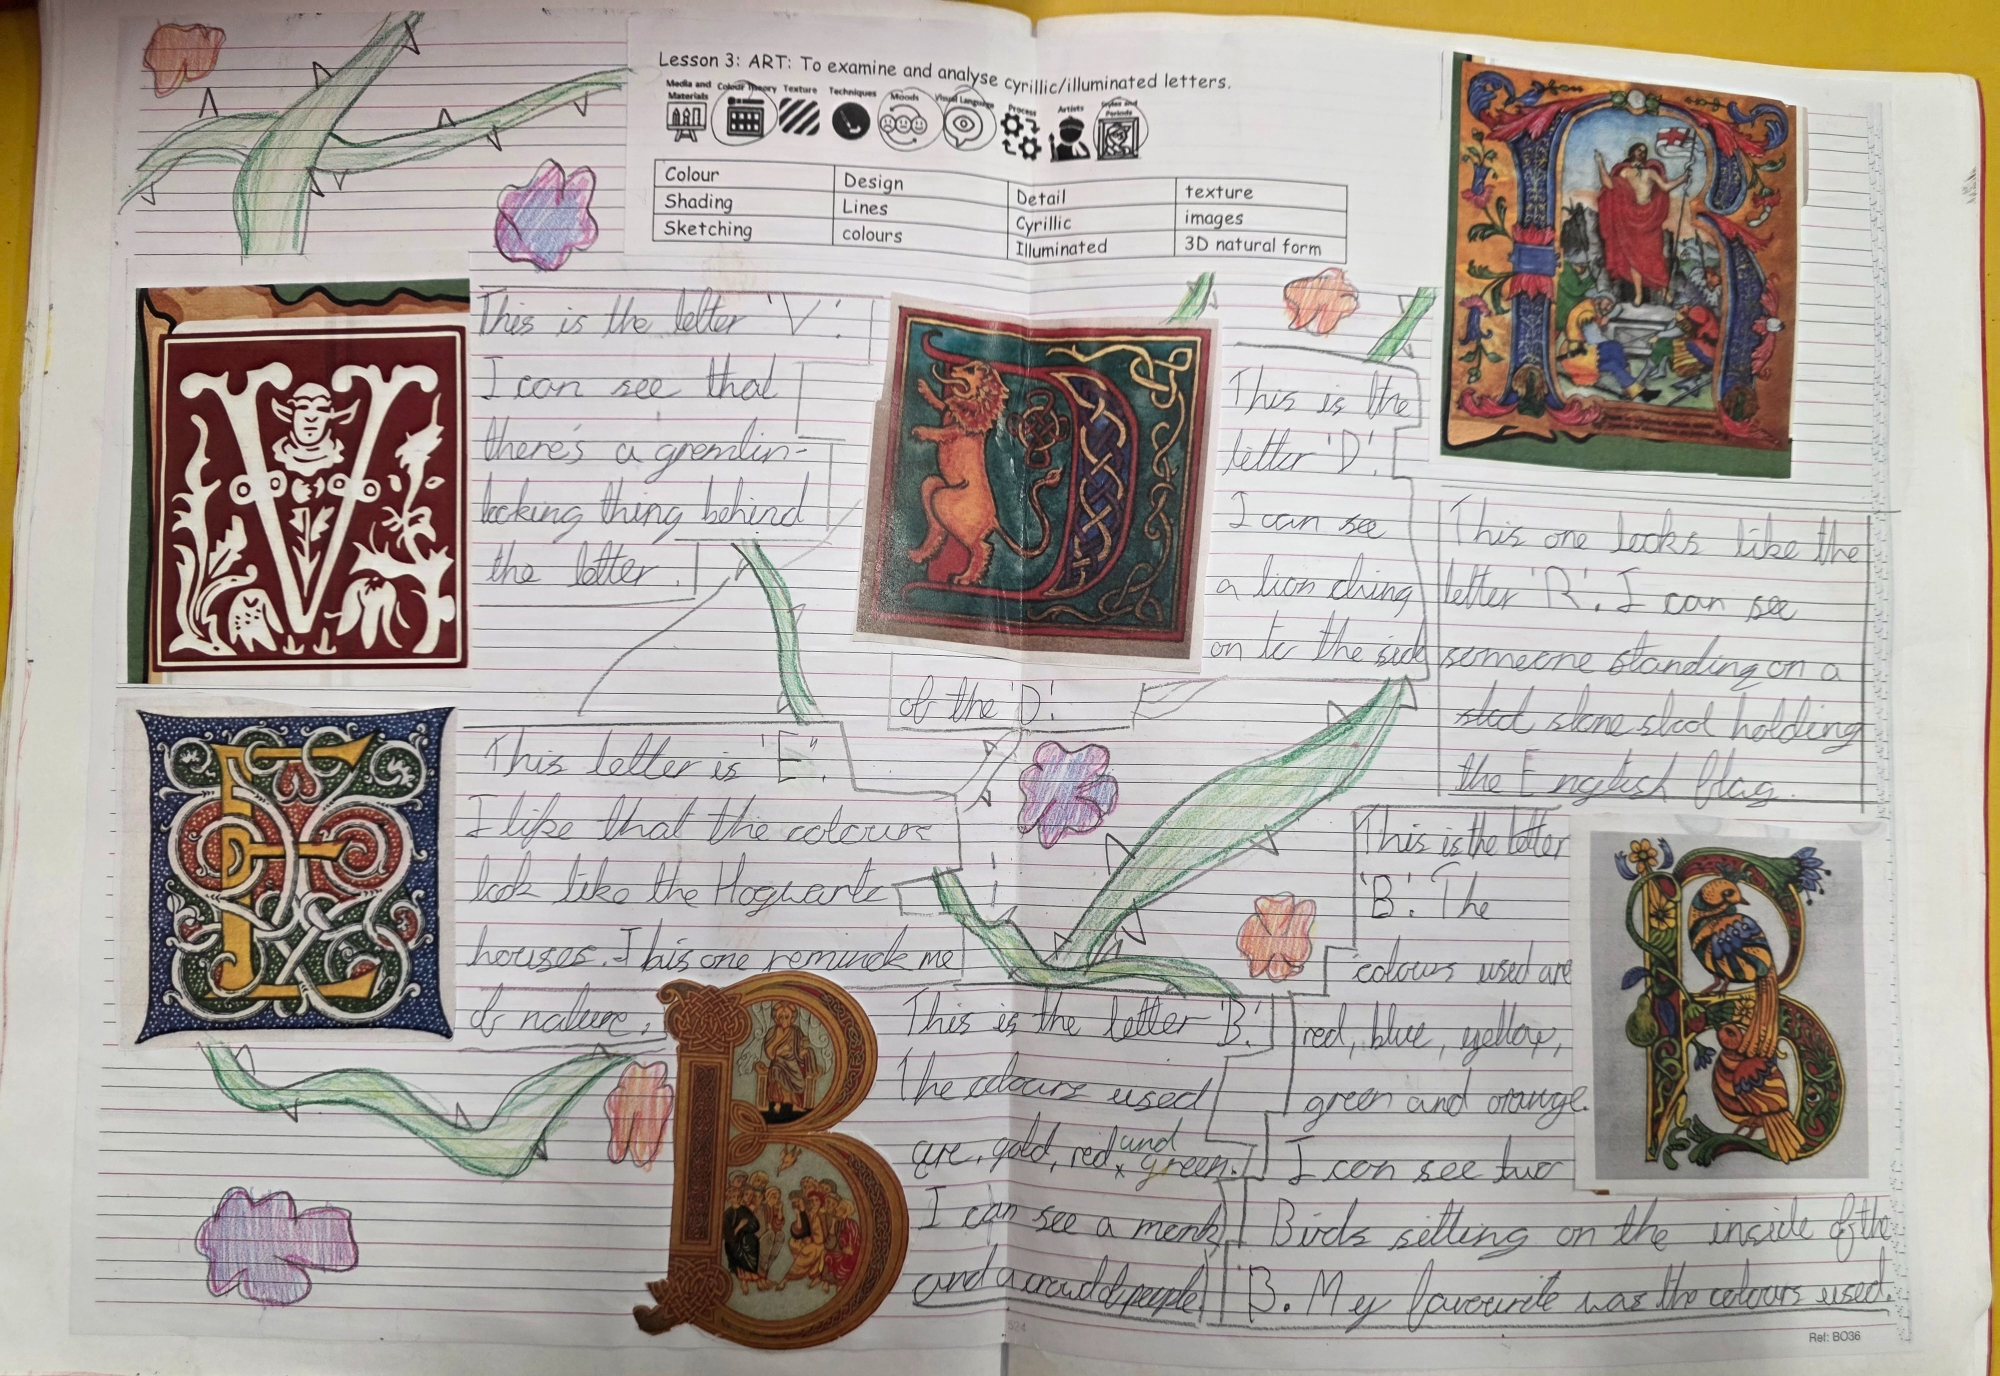 Lesson 3: ART: To examine and analyse cyrillic/illuminated letters.
Media and Materials
Colour Theory
Texture
Techniques
Moods
Visual Language
Process
Artists
Styles and Periods
Colour Design Detail texture
Shading Lines Cyrillic images
Sketching colours Illuminated 3D natural form
This is the letter 'V'.
I can see that
there's a gremlin-
looking thing behind
the letter.
This is the
letter 'D'.
I can see
a lion cling
on to the side
of the 'D'.
This one looks like the
letter 'R'. I can see
someone standing on a
slad stone slad holding
the English flag.
This letter is "E".
I like that the colours
look like the Hogwarts
houses. This one reminds me
of nature.
This is the letter 'B'.
The colours used
are, gold, red and green.
I can see a monk
and a crowd of people
This is the letter
'B'. The
colours used are
red, blue, yellow,
green and orange.
I can see two
Birds sitting on the inside of the
B. My favourite was the colours used.
Ref: BO36